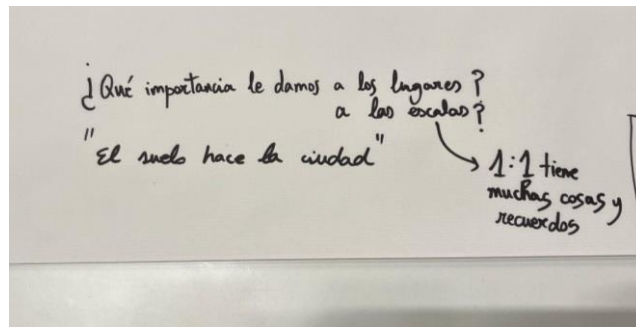 ¿Qué importancia le damos a los lugares?
a las escalas?
"El suelo hace la ciudad"
1:1 tiene
muchas cosas y
recuerdos